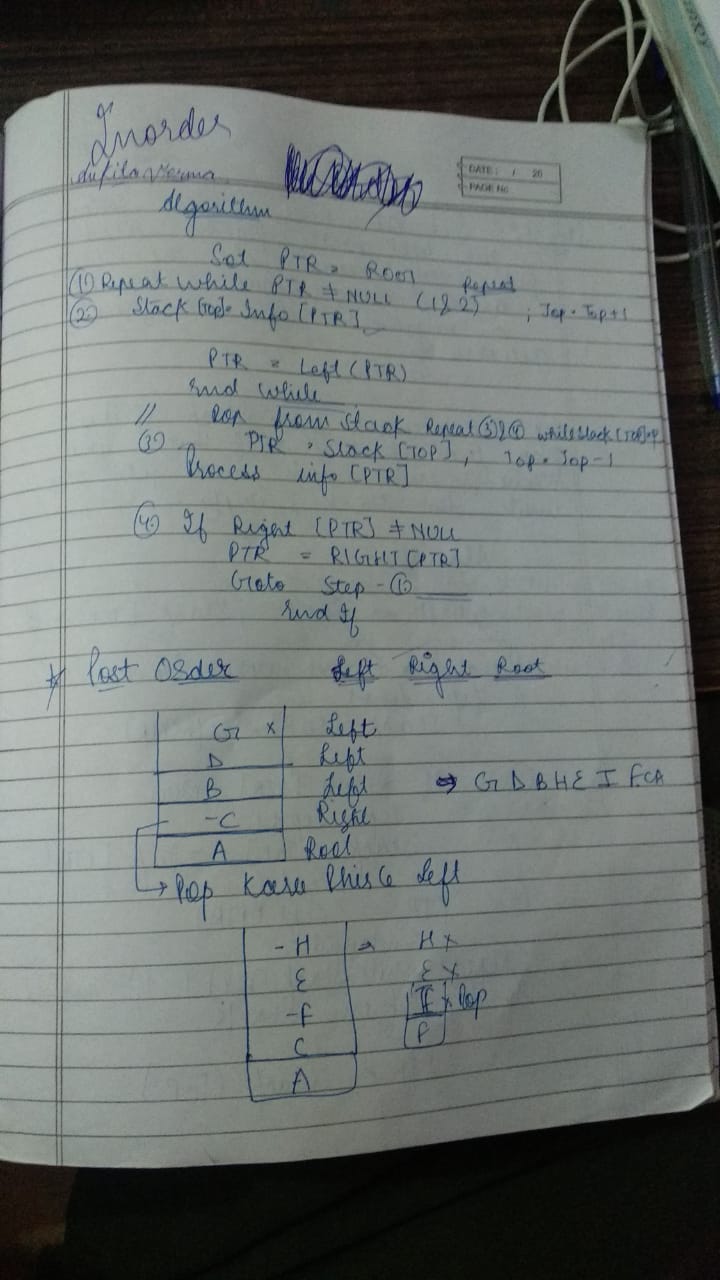 Inorder
DATE: / 20
PAGE No
Algorithm
Set PTR = ROOT
(1) Repeat While PTR ≠ NULL (1 & 2) Repeat
(2) Stack [Top] = Info [PTR] ; Top = Top + 1
PTR = Left (PTR)
End While
// Pop from Stack Repeat (3) & (4) while Stack [TOP]
(3) PTR = Stack [TOP], Top = Top - 1
Process info [PTR]
(4) If Right [PTR] ≠ NULL
PTR = RIGHT [PTR]
Goto Step - (1)
End If
* Post Order Left Right Root
G x Left
D Left
B Left ⇒ G D B H E I F C A
-C Right
A Root
→ Pop Left
- H ⇒ H x
E E x
-F I x Pop
C F
A